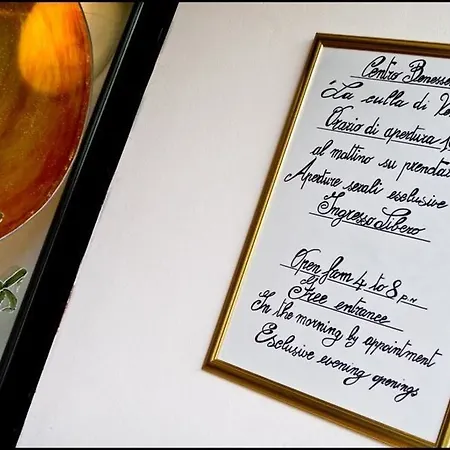 Centro Benesse
"La culla di Ve
Orario di apertura 1
al mattino su prenota
Aperture serali esclusive
Ingresso Libero
Open from 4 to 8 p.m
Free entrance
In the morning by appointment
Esclusive evening openings